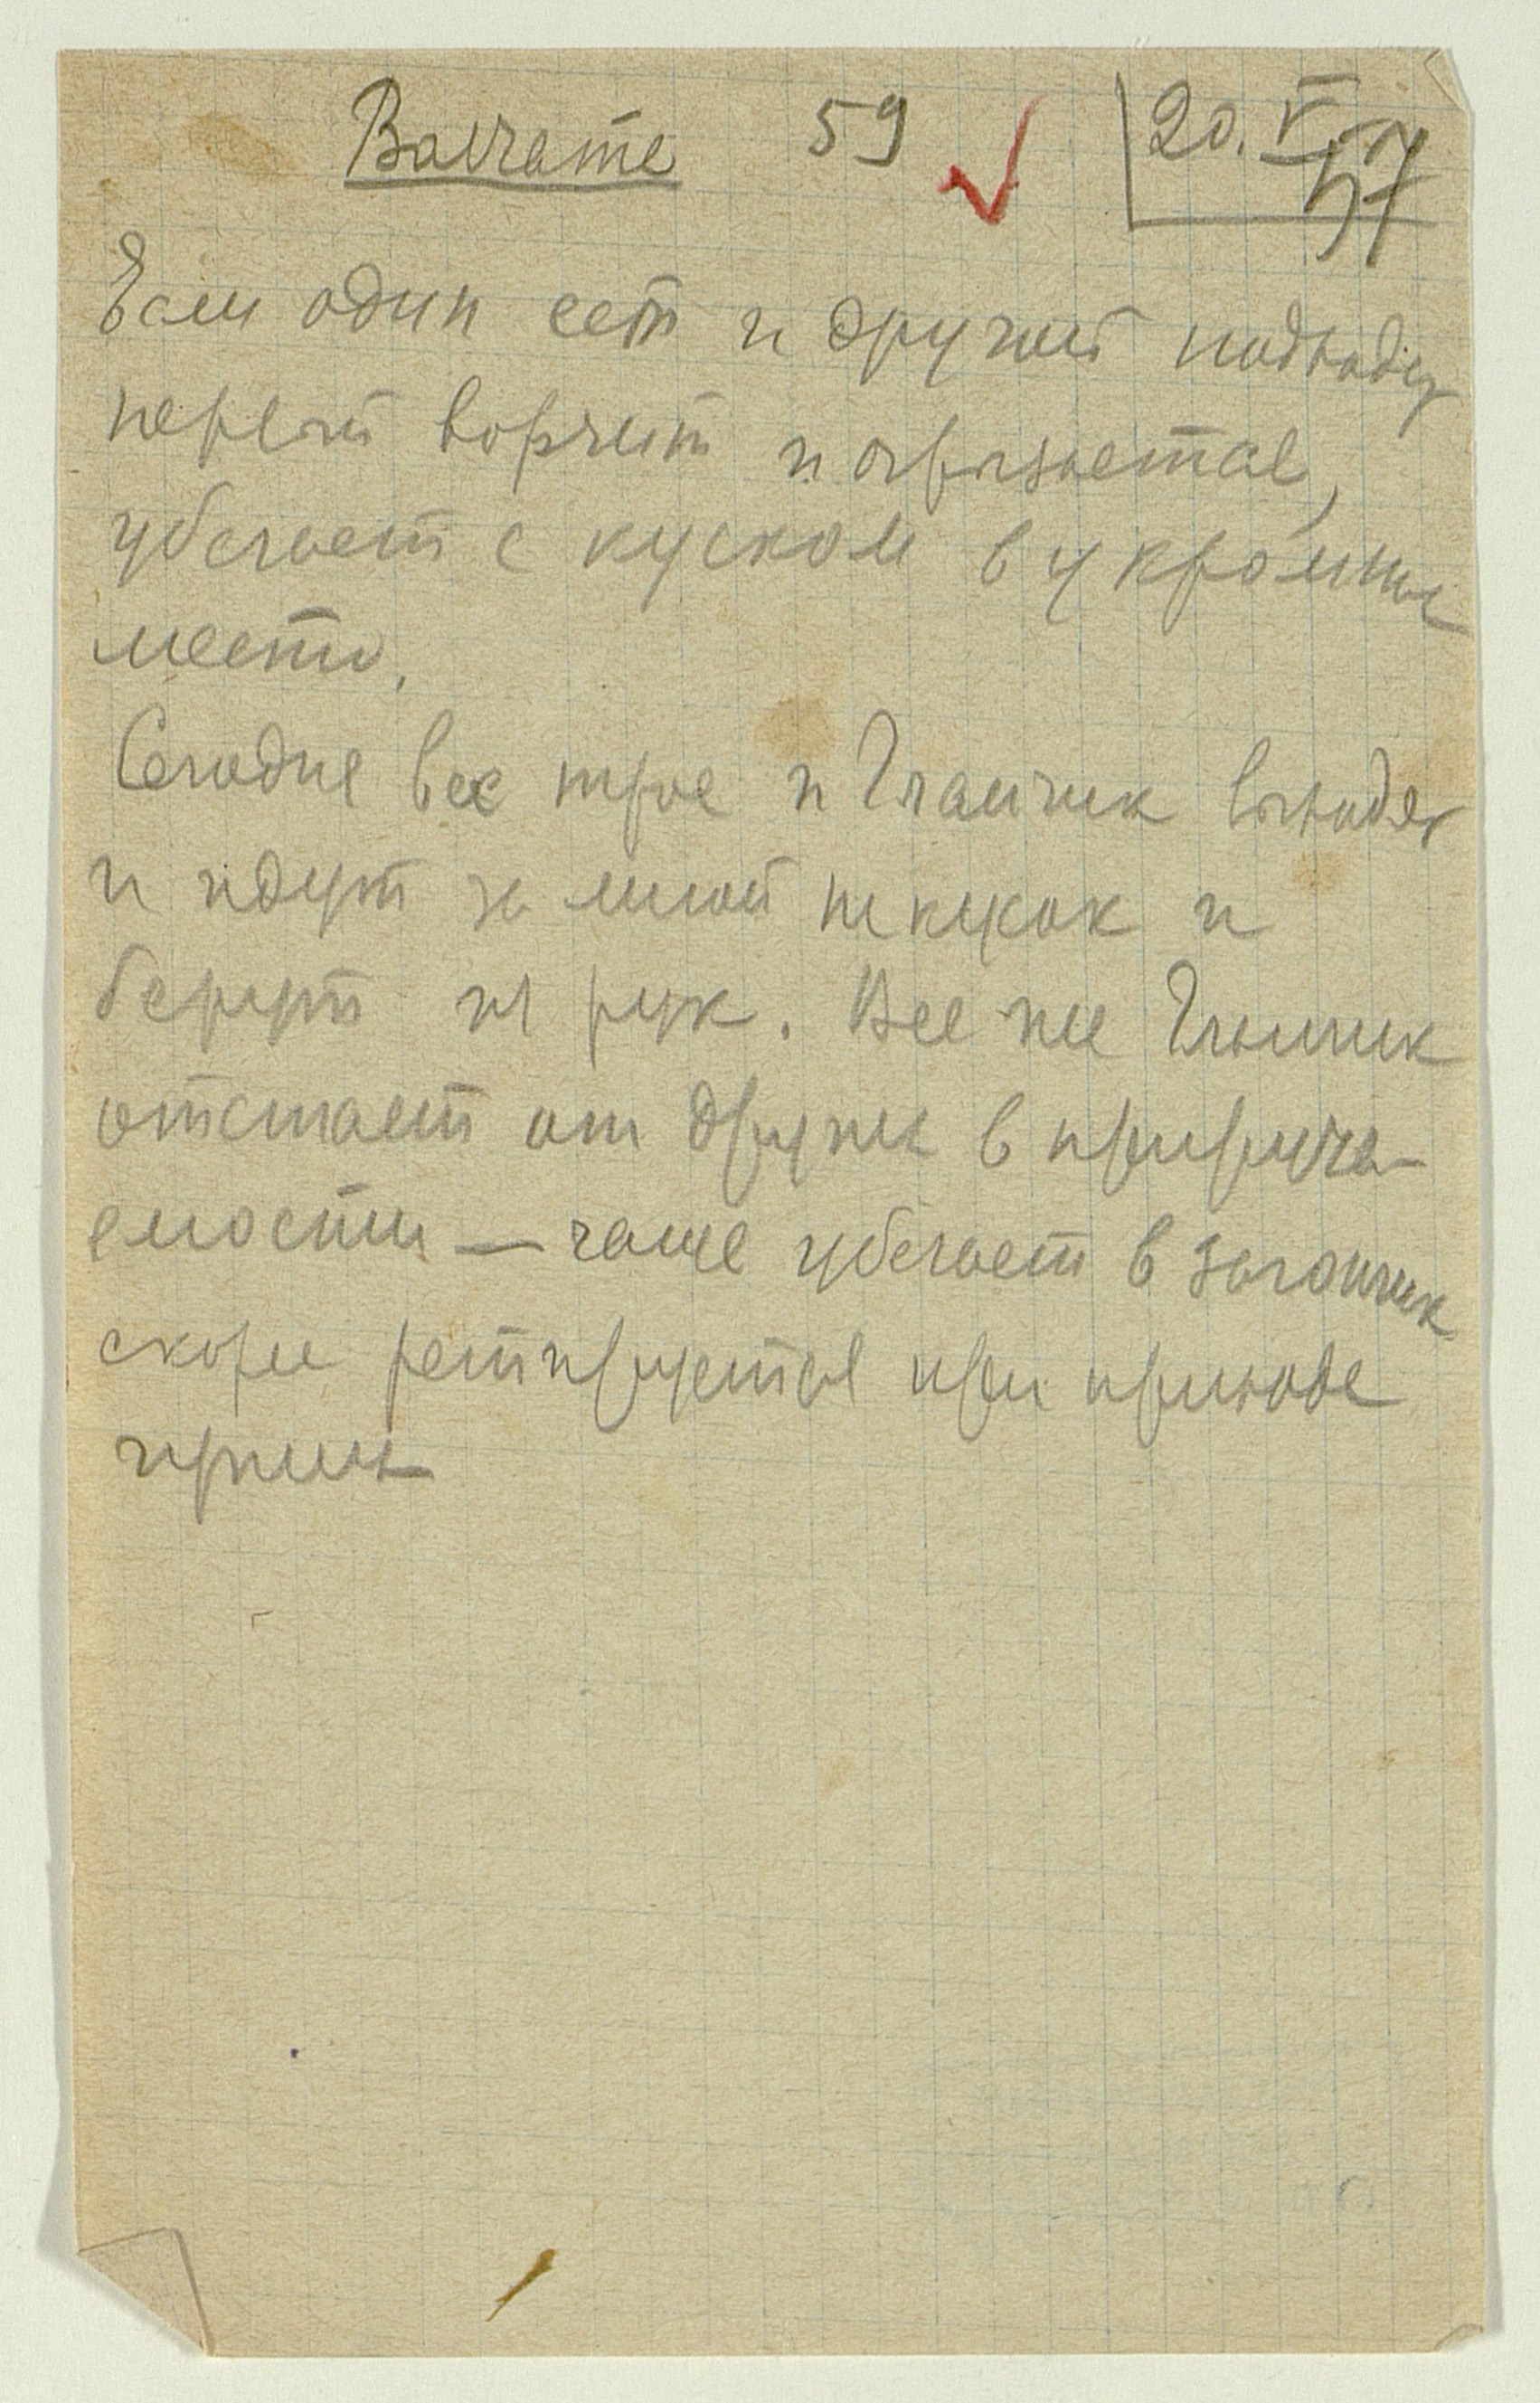 Волчата 59 20.V.57
Если один ест и другой подходит
первый ворчит и огрызается,
убегает с куском в укромное
место.
Сегодня все трое и выходят
и идут за мной на кусок и
берут из рук. Все же
отстает от других в прируча-
емости — чаще убегает в загончик
скорее ретируется при приходе
чужих